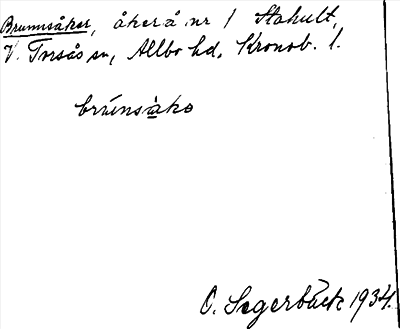 Brunnsåker, åker å nr 1 Stahult,
V. Torsås sn, Allbo hd, Kronob. l.
brúnsàko
O. Segerbäck 1934.